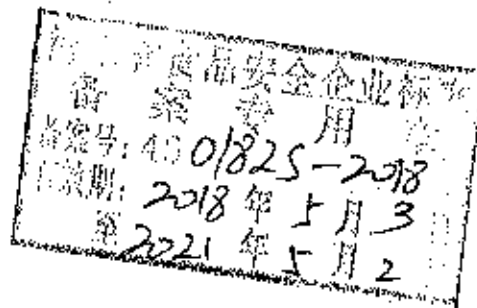 食品安全企业标准
备案专用章
备案号:4501825-2018
日期:2018年5月3日
至2021年5月2